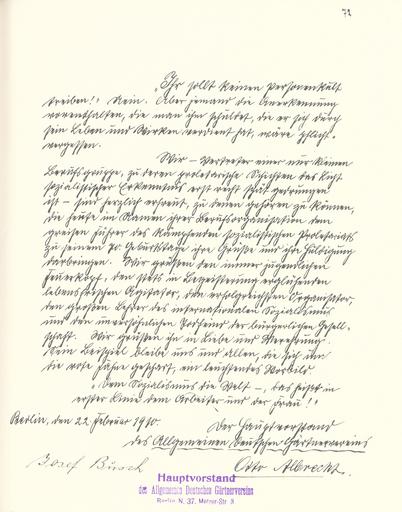 72
„Ihr sollt keinen Personenkult
treiben!" Nein. Aber jemand die Anerkennung
vorenthalten, die man ihm schuldet, die er sich durch
sein Leben und Wirken verdient hat, wäre pflicht-
vergessen.
Wir – Vertreter einer nur kleinen
Berufsgruppe, zu deren proletarische Schichten das Licht
sozialistischer Erkenntnis erst recht spät gedrungen
ist – sind herzlich erfreut, zu denen gehören zu können,
die heute im Namen ihrer Berufsorganisation dem
greisen Führer des kämpfenden sozialistischen Proletariats
zu seinem 70. Geburtstage ihre Grüße und ihre Huldigung
darbringen. Wir grüßen den immer jugendlichen
Feuerkopf, den stets in Begeisterung erglühenden
lebensfrischen Agitator, den erfolgreichsten Organisator,
den großen Lehrer des internationalen Sozialismus
und den unversöhnlichen Todfeind der bürgerlichen Gesell-
schaft. Wir grüßen ihn in Liebe und Verehrung.
Sein Beispiel bleibe uns und Allen, die sich um
die rote Fahne geschart, ein leuchtendes Vorbild
„Dem Sozialismus die Welt –, das heißt in
erster Linie dem Arbeiter und der Frau!"
Berlin, den 22. Februar 1910.
Der Hauptvorstand
des Allgemeinen Deutschen Gärtnervereins
Josef Busch
Otto Albrecht.
Hauptvorstand
des Allgemeinen Deutschen Gärtnervereins
Berlin N. 37, Metzer-Str. 3